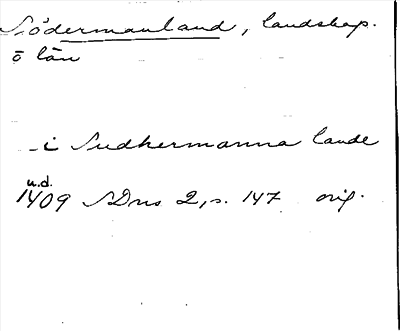 Södermanland, landskap.
o län
i Sudhermanna lande
u.d.
1409 SDns 2, s. 147 orig.